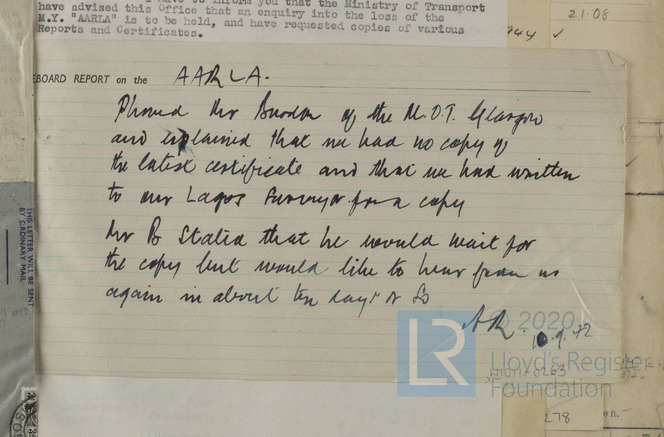 I have to inform you that the Ministry of Transport
have advised this Office that an enquiry into the loss of the
M.Y. "AARLA" is to be held, and have requested copies of various
Reports and Certificates.
21.08
EBOARD REPORT on the AARLA.
Phoned Mr Burdon of the M.O.T. Glasgow
and explained that we had no copy of
the latest certificate and that we had written
to our Lagos Surveyor for a copy
Mr B Stated that he would wait for
the copy but would like to hear from us
again in about ten days or so
AR.
THIS LETTER WILL BE SENT
BY ORDINARY MAIL
© 2020
LR Lloyd's Register
Foundation
278